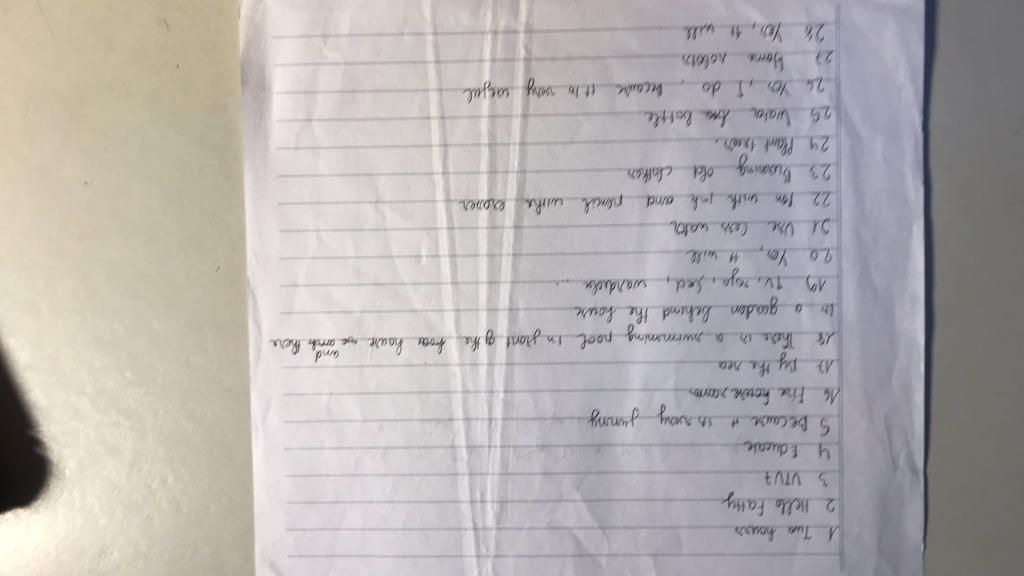 1 Two hours
2 Hello Fatty
3 VTV7
4 Educate
5 Because it is very funny
16 Five house rooms
17 By the sea
18 There is a swimming pool in front of the house and there
is a garden behind the house
19 TV, sofa, bed, wardrobe ...
20 Yes, it will
21 Use less water
22 Pen with ink and pencil with eraser
23 old clothes
24 Plant trees.
25 Water bottle
26 Yes, I do, because it is very useful
27 Home robots
28 Yes, it will